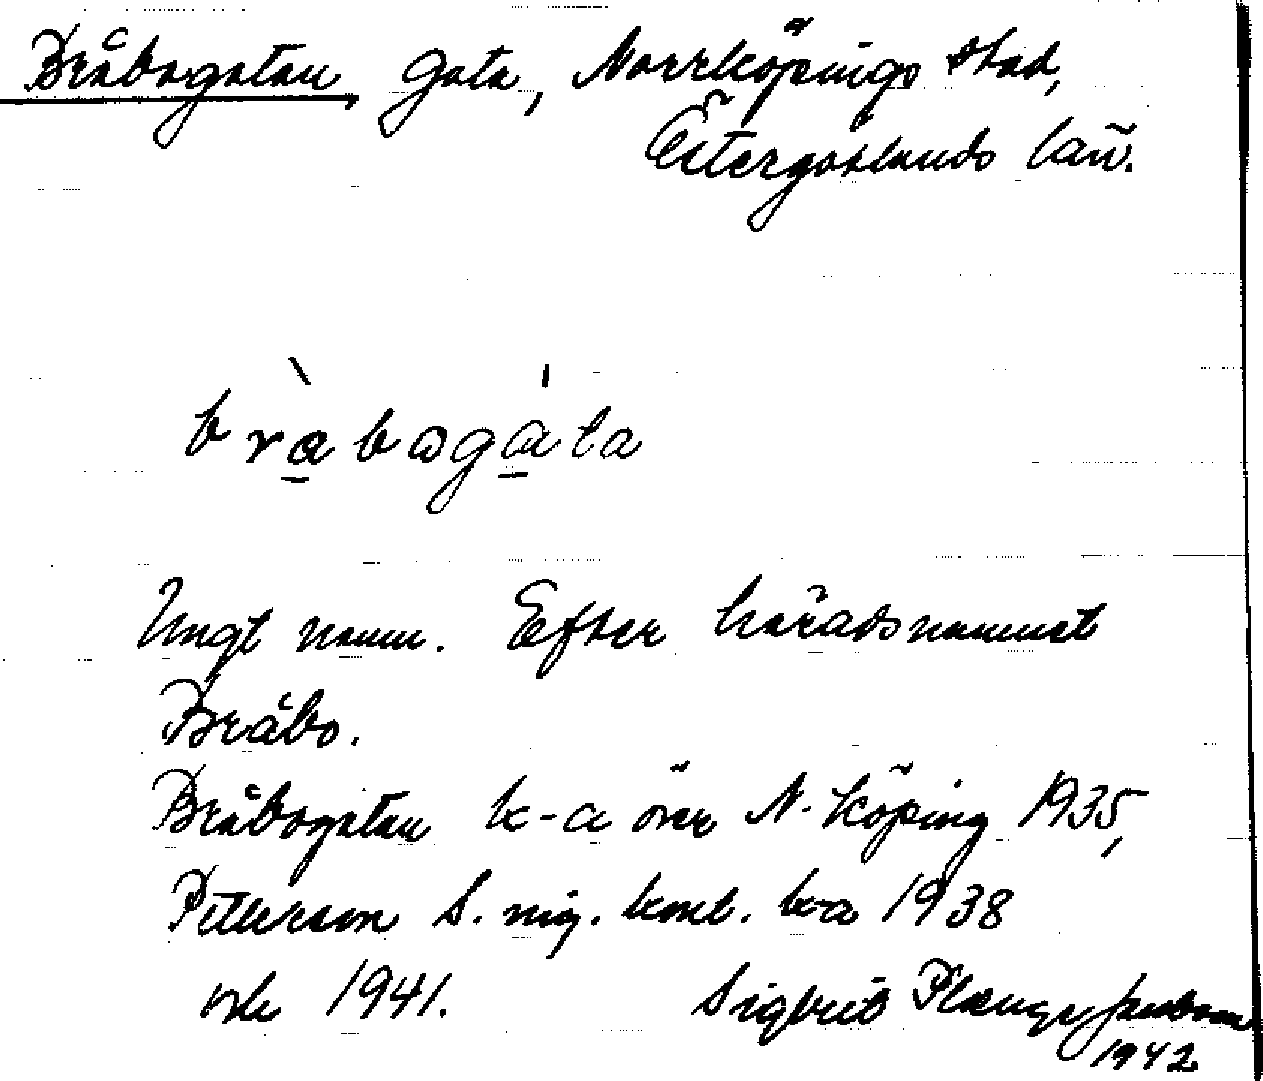 Bråbogatan, gata, Norrköpings stad,
Östergötlands län.
bràbogáta
Ungt namn. Efter häradsnamnet
Bråbo.
Bråbogatan k-a över N-köping 1935,
Petterson S. ing. kont. k-a 1938
och 1941.
Sigbrit Plænge Jacobson
1942